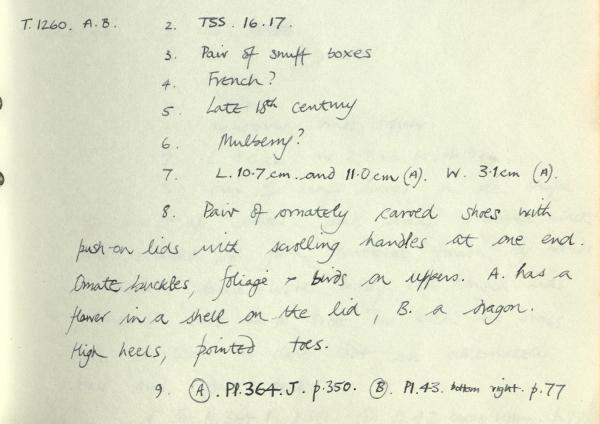 T.1260. A.B. 2. TSS. 16.17.
3. Pair of snuff boxes
4. French?
5. Late 18th century
6. Mulberry?
7. L. 10.7 cm. and 11.0 cm (A). W. 3.1 cm (A).
8. Pair of ornately carved shoes with
push-on lids with scrolling handles at one end.
Ornate buckles, foliage + birds on uppers. A. has a
flower in a shell on the lid, B. a dragon.
High heels, pointed toes.
9. (A). Pl.364.J. p.350. (B). Pl.43. bottom right. p.77